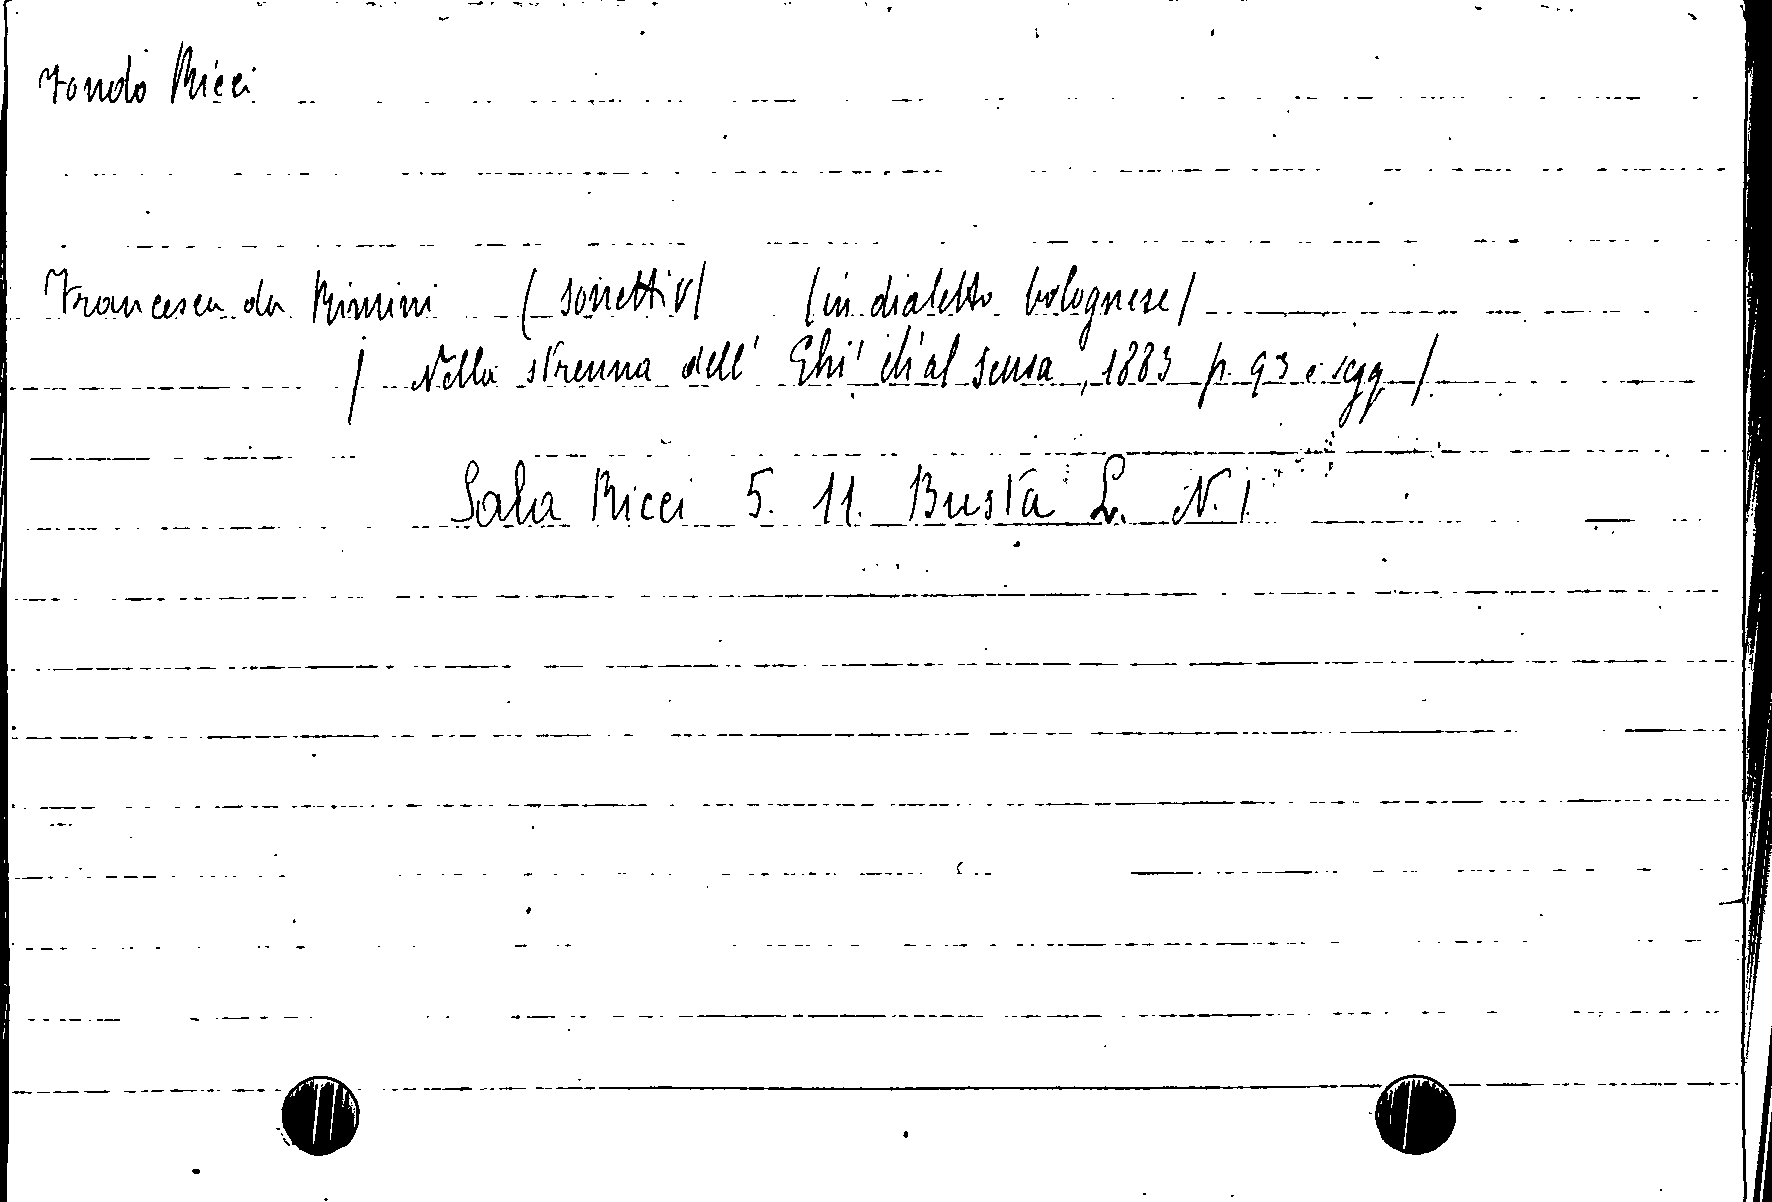 Fondo Ricci
Francesca da Rimini (sonetti V) (in dialetto bolognese)
( Nella strenna dell' Ehi! ch'al scusa, 1883 p. 93 e sgg )
Sala Ricci 5. 11. Busta L. N. 1